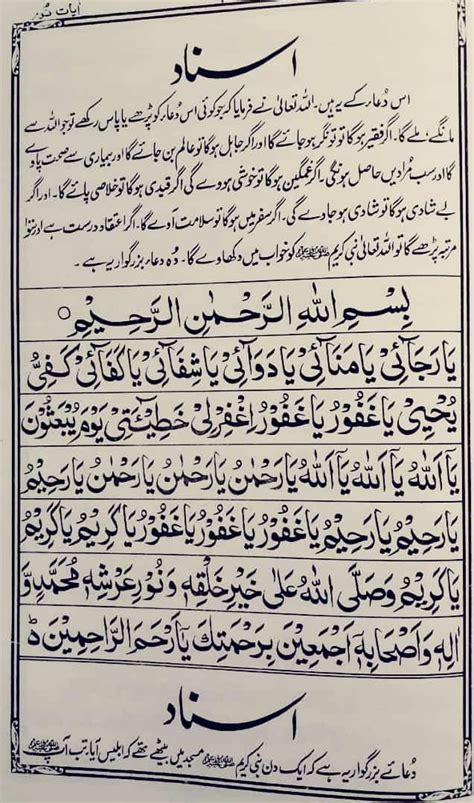 آیات نور
اسناد
اس دُعا کے یہ ہیں۔ اللہ تعالیٰ نے فرمایا کہ جو کوئی اس دُعا کو پڑھے یا پاس رکھے تو جو اللہ سے
مانگے، ملے گا۔ اگر فقیر ہوگا تو تونگر ہو جائے گا اور اگر جاہل ہوگا تو عالم بن جائے گا اور بیماری سے صحت پاوے
گا اور سب مُرادیں حاصل ہونگی۔ اگر غمگین ہوگا تو خوشی ہووے گی اگر قیدی ہوگا تو خلاصی پائے گا۔ اور اگر
بے شادی ہوگا تو شادی ہو جاوے گی۔ اگر سفر میں ہوگا تو سلامت آوے گا۔ اگر اعتقاد درست ہے اور نوا
مرتبہ پڑھے گا تو اللہ تعالیٰ نبی کریم ﷺ کو خواب میں دکھاوے گا۔ وُہ دعاء بزرگوار یہ ہے۔
بِسْمِ اللهِ الرَّحْمٰنِ الرَّحِيْمِ ○
يَا رَجَائِیْ يَا مَنَائِیْ يَا دَوَائِیْ يَا شِفَائِیْ يَا كَفَائِیْ كَفِیُّ
يُحْيِیْ يَا غَفُوْرُ يَا غَفُوْرُ اِغْفِرْ لِیْ خَطِيْئَتِیْ يَوْمَ يُبْعَثُوْنَ
يَا اَللهُ يَا اَللهُ يَا اَللهُ يَا رَحْمٰنُ يَا رَحْمٰنُ يَا رَحْمٰنُ يَا رَحِيْمُ
يَا رَحِيْمُ يَا رَحِيْمُ يَا غَفُوْرُ يَا غَفُوْرُ يَا غَفُوْرُ يَا كَرِيْمُ يَا كَرِيْمُ
يَا كَرِيْمُ وَصَلَّى اللهُ عَلٰى خَيْرِ خَلْقِهٖ وَنُوْرِ عَرْشِهٖ مُحَمَّدٍ وَّ
اٰلِهٖ وَاَصْحَابِهٖ اَجْمَعِيْنَ بِرَحْمَتِكَ يَا اَرْحَمَ الرَّاحِمِيْنَ ط
اسناد
دُعائے بزرگوار یہ ہے کہ ایک دن نبی کریم ﷺ مسجد میں بیٹھے تھے کہ ابلیس آیا، تب آپ